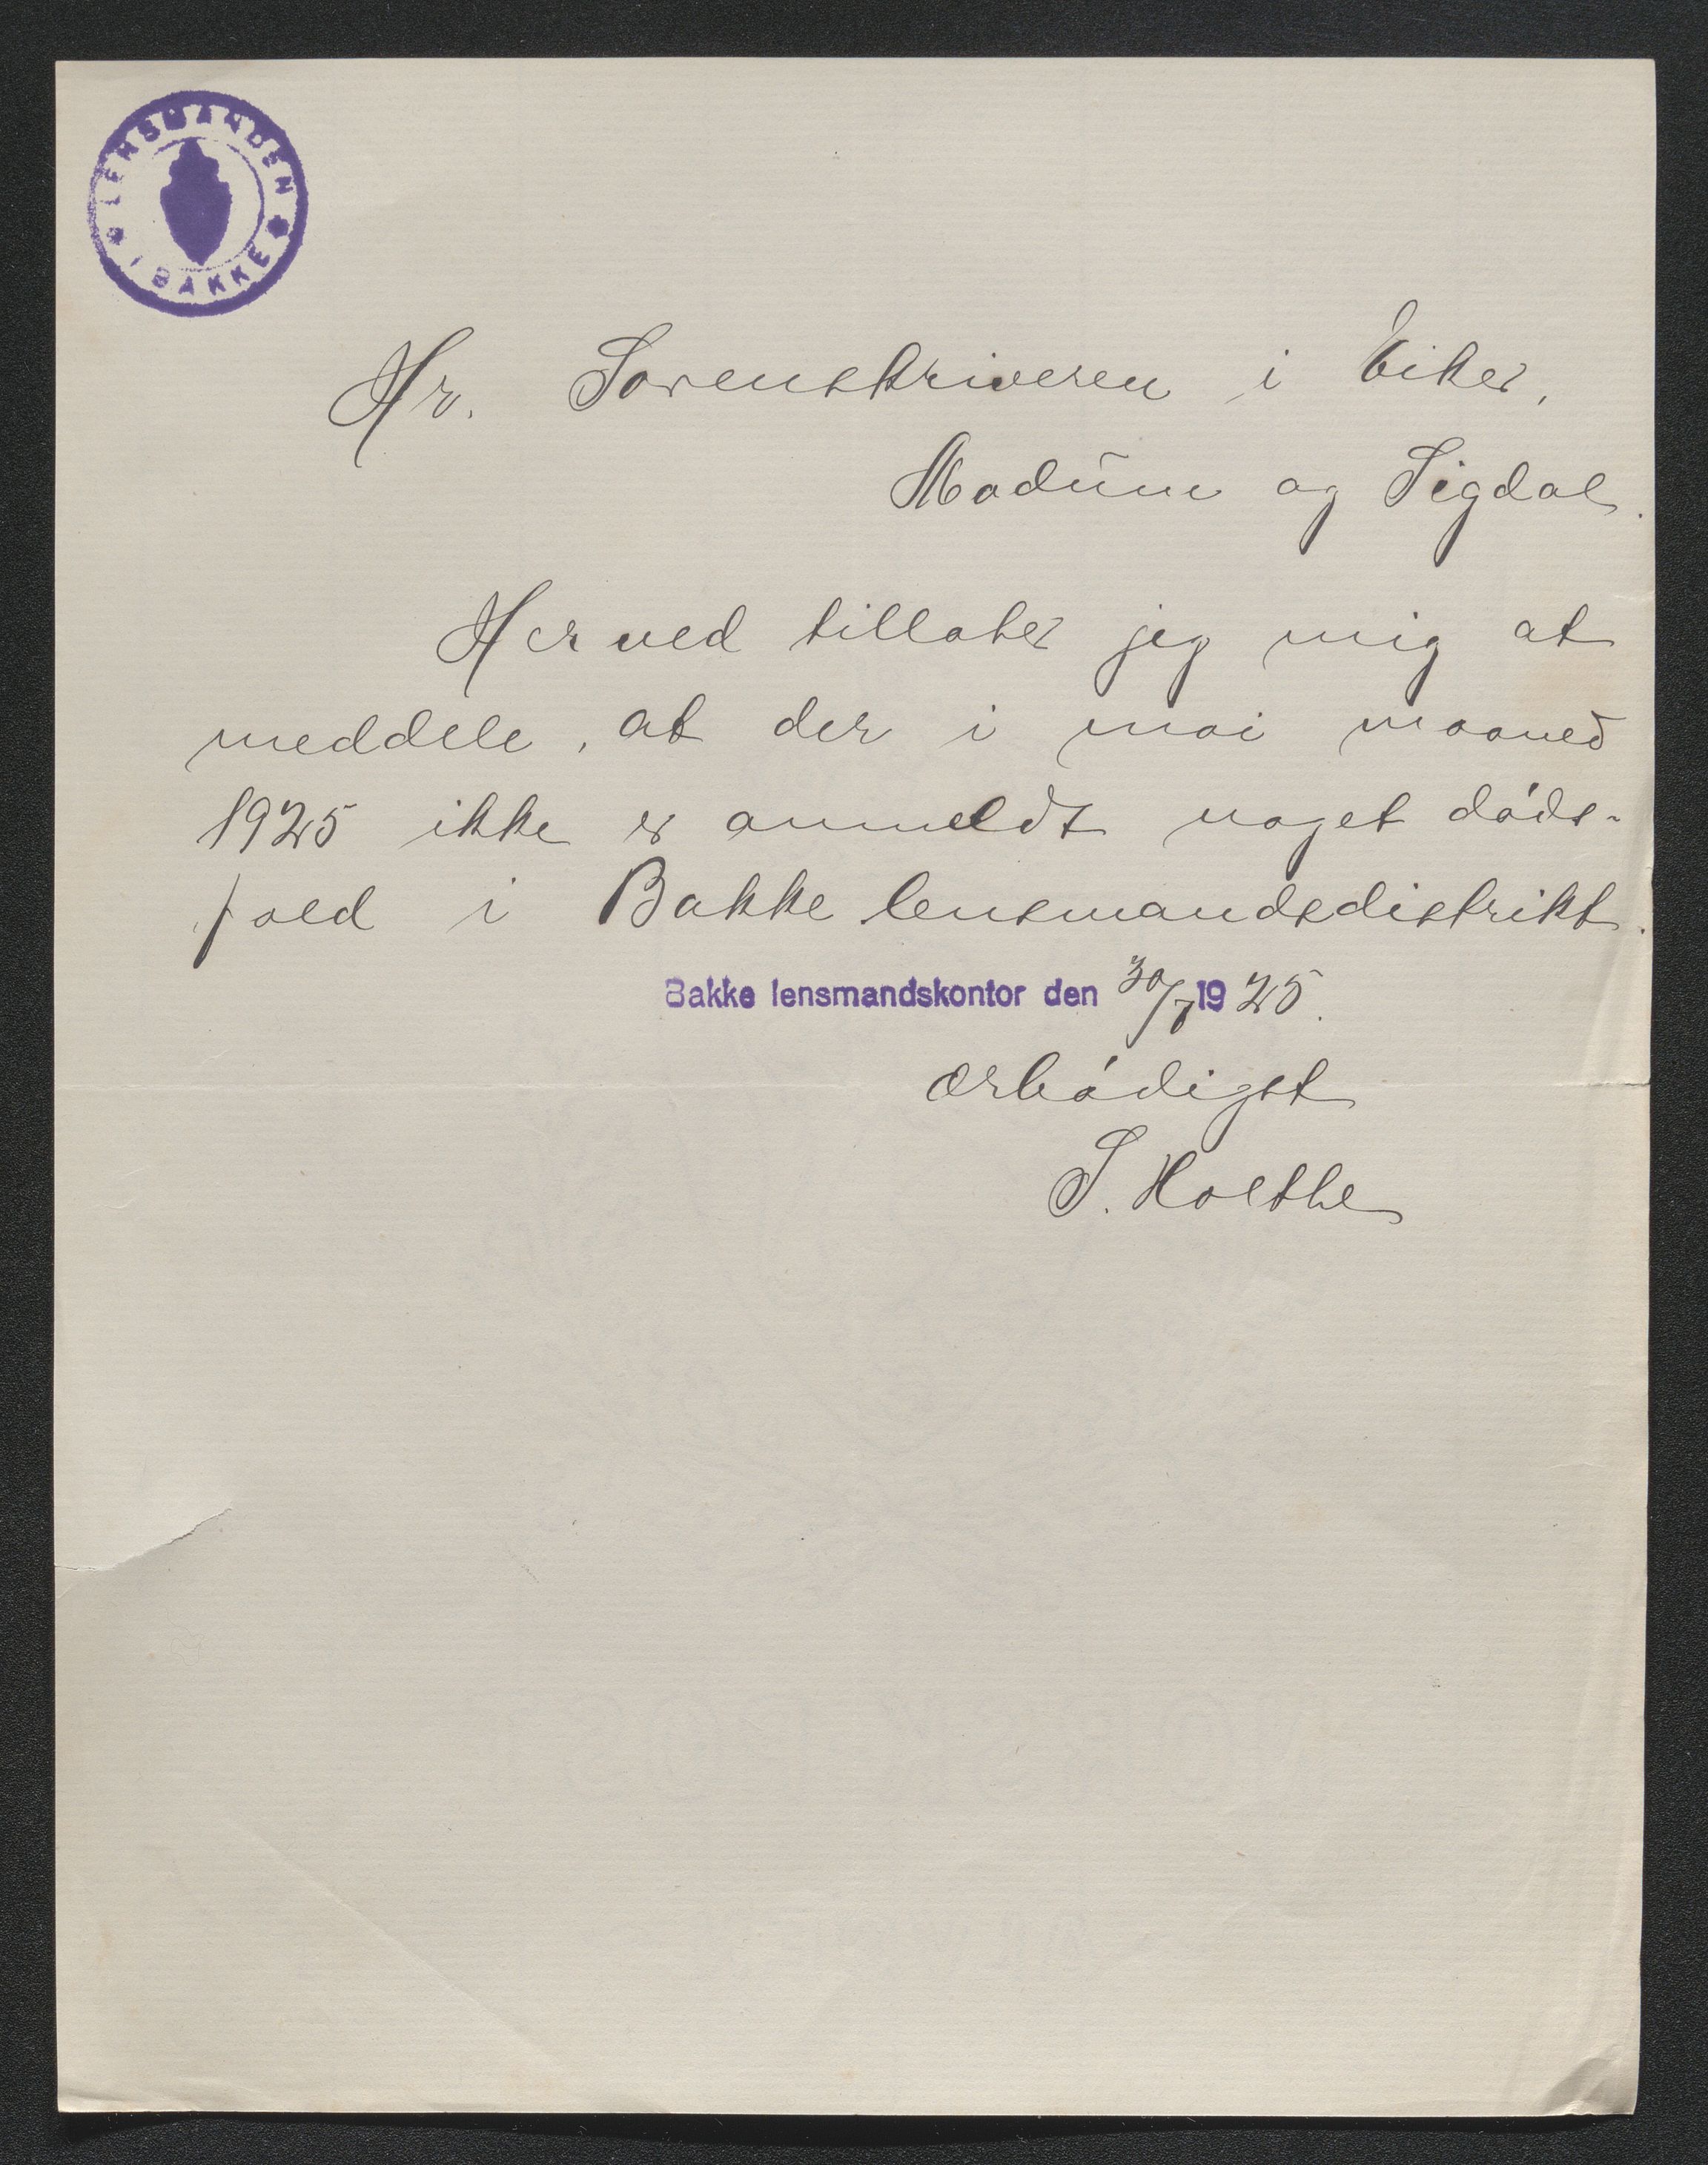 LENSMANDEN
I BAKKE
Hr. Sorenskriveren i Eiker,
Modum og Sigdal.
Herved tillater jeg mig at
meddele, at der i mai maaned
1925 ikke er anmeldt noget døds-
fald i Bakke lensmandsdistrikt.
Bakke lensmandskontor den 30/7 1925.
ærbødigst
S. Holthe